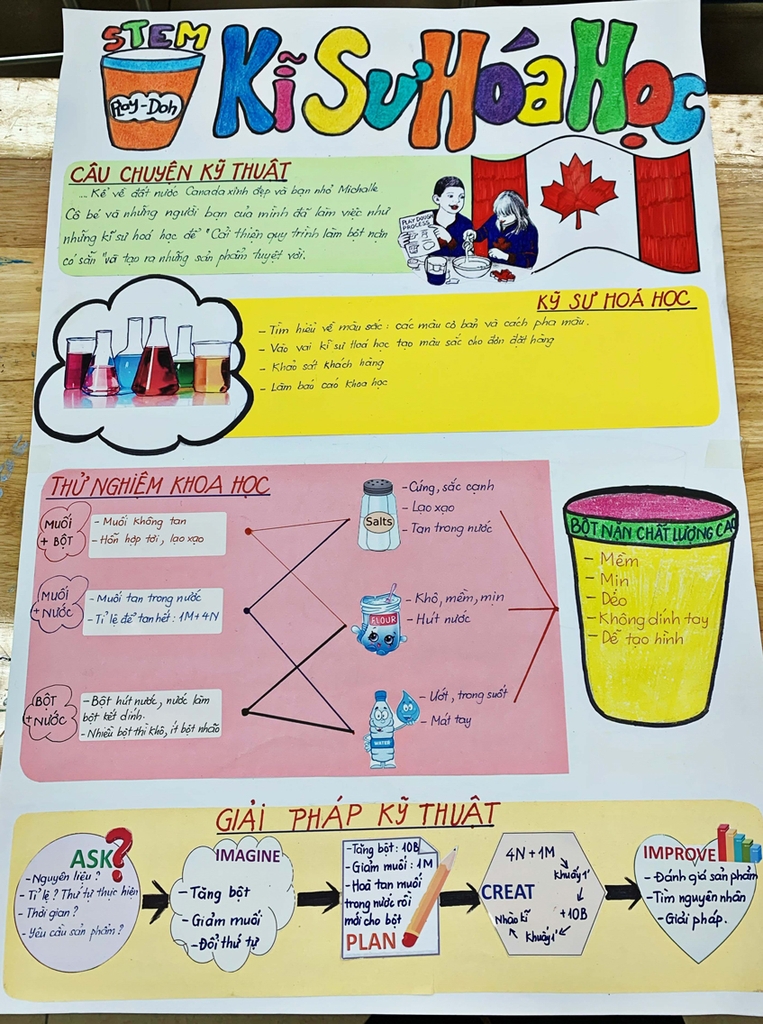 STEM
Play-Doh
Kĩ Sư Hóa Học
CÂU CHUYỆN KỸ THUẬT
... Kể về đất nước Canada xinh đẹp và bạn nhỏ Michalle
Cô bé và những người bạn của mình đã làm việc như
những kĩ sư hoá học để "Cải thiện quy trình làm bột nặn
có sẵn" và tạo ra những sản phẩm tuyệt vời.
PLAY DOUGH
PROCESS
KỸ SƯ HOÁ HỌC
- Tìm hiểu về màu sắc: các màu cơ bản và cách pha màu.
- Vào vai kĩ sư Hoá học tạo màu sắc cho đơn đặt hàng
- Khảo sát khách hàng
- Làm báo cáo khoa học
THỬ NGHIỆM KHOA HỌC
MUỐI
+ BỘT
- Muối không tan
- Hỗn hợp tơi, lạo xạo
MUỐI
+ NƯỚC
- Muối tan trong nước
- Tỉ lệ để tan hết: 1M+4N
BỘT
+ NƯỚC
- Bột hút nước, nước làm
bột kết dính.
- Nhiều bột thì khô, ít bột nhão
Salts
- Cứng, sắc cạnh
- Lạo xạo
- Tan trong nước
FLOUR
- Khô, mềm, mịn
- Hút nước
WATER
- Ướt, trong suốt
- Mát tay
BỘT NẶN CHẤT LƯỢNG CAO
- Mềm
- Mịn
- Dẻo
- Không dính tay
- Dễ tạo hình
GIẢI PHÁP KỸ THUẬT
ASK?
- Nguyên liệu?
- Tỉ lệ? Thứ tự thực hiện
- Thời gian?
- Yêu cầu sản phẩm?
IMAGINE
- Tăng bột
- Giảm muối
- Đổi thứ tự
- Tăng bột: 10B
- Giảm muối: 1M
- Hoà tan muối
trong nước rồi
mới cho bột
PLAN
CREAT
4N + 1M
Khuấy 1'
+10B
Khuấy 1'
Nhào kĩ
IMPROVE
- Đánh giá sản phẩm
- Tìm nguyên nhân
- Giải pháp.